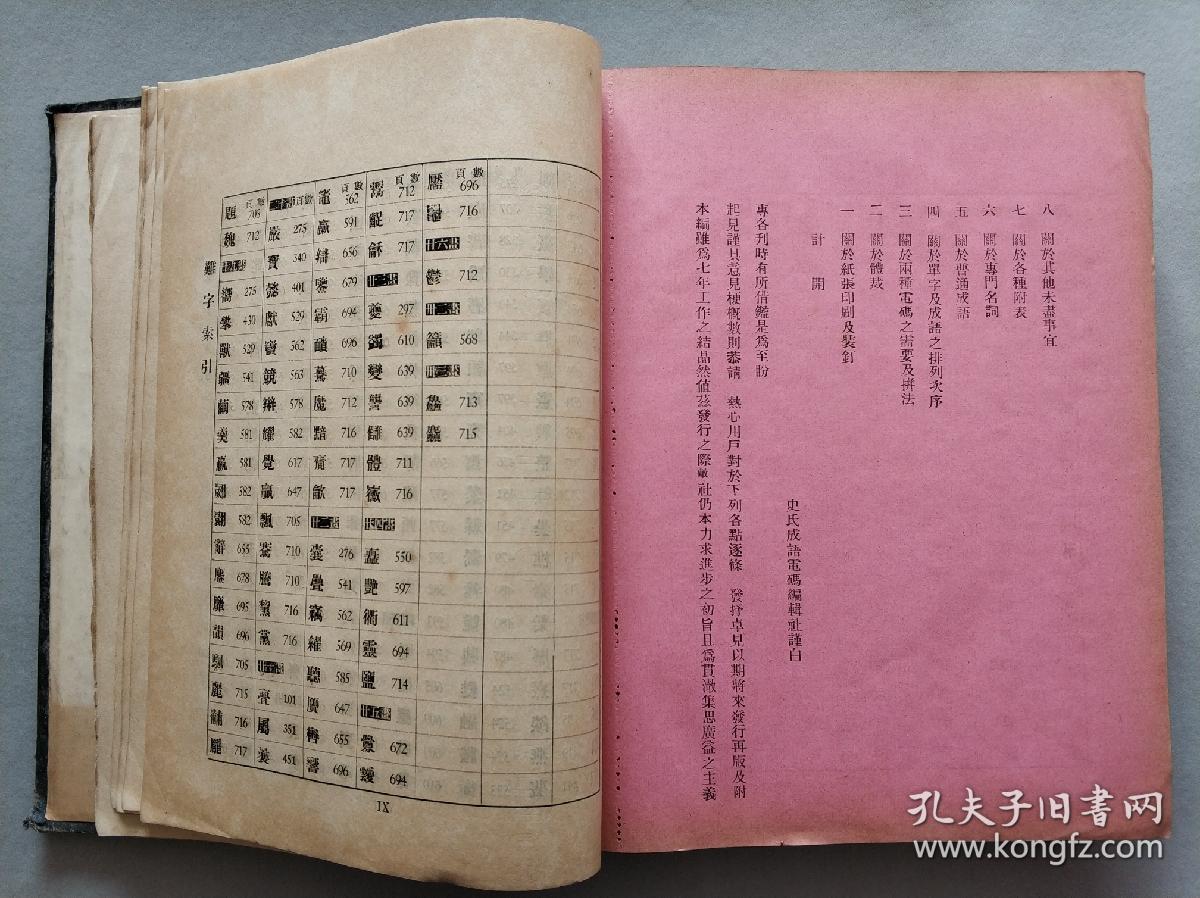 難字索引
頁數
題 705
魏 712
嚮 275
攀 430
獸 529
疆 541
繭 578
羹 581
羸 581
翽 582
翾 582
辭 655
鏖 678
離 695
韻 696
麗 715
黼 716
龐 717
頁數
嚴 275
寶 340
懿 401
獻 529
竇 562
競 563
辮 578
耀 582
覺 617
贏 647
飄 705
騫 710
騰 710
黧 716
黨 716
二十一畫
亹 101
屬 351
攀 451
頁數
竈 562
羸 591
辯 656
鏖 679
霸 694
韻 696
驀 710
魔 712
黯 716
齎 717
二十二畫
囊 276
疊 541
竊 562
糴 569
聽 585
贗 647
轡 655
響 696
頁數
712
齪 717
龢 717
二十三畫
夔 297
蠲 610
變 639
讐 639
讎 639
體 711
黴 716
二十四畫
矗 550
艷 597
衢 611
靈 694
鹽 714
二十五畫
釁 672
靉 694
頁數
靨 696
黌 716
二十六畫
鬱 712
三十二畫
籲 568
三十三畫
鱻 713
麤 715
IX
本編雖爲七年工作之結晶然値茲發行之際敝社仍本力求進步之初旨且爲貫澈集思廣益之主義
起見謹具意見梗概數則恭請 熱心用戶對於下列各點逐條 發抒卓見以期將來發行再版及附
專各刊時有所借鑑是爲至盼
史氏成語電碼編輯社謹白
計開
一 關於紙張印刷及裝釘
二 關於體裁
三 關於兩種電碼之需要及拼法
四 關於單字及成語之排列次序
五 關於普通成語
六 關於專門名詞
七 關於各種附表
八 關於其他未盡事宜
孔夫子旧书网
www.kongfz.com